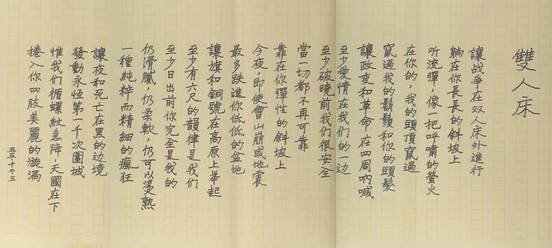 雙人床
讓战爭在双人床外進行
躺在你長長的斜坡上
听流彈，像一把呼嘯的螢火
在你的，我的頭頂竄過
竄過我的鬍鬚和你的頭髮
讓政变和革命在四周吶喊
至少愛情在我們的一边
至少破曉前我們很安全
當一切都不再可靠
靠在你彈性的斜坡上
今夜，即使會山崩或地震
最多跌進你低低的盆地
讓旗和銅號在高原上舉起
至少有六尺的韻律是我們
至少日出前你完全是我的
仍滑膩，仍柔軟，仍可以燙熟
一種純粹而精細的瘋狂
讓夜和死亡在黑的边境
發動永恆第一千次圍城
惟我們循螺紋急降，天國在下
捲入你四肢美麗的漩渦